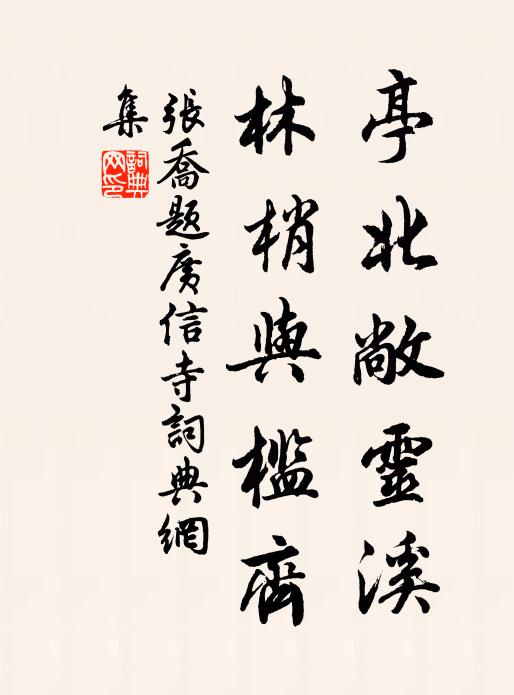 亭北敞靈溪
林梢與檻齊
張喬題廣信寺詞典網
集
詞典
网印